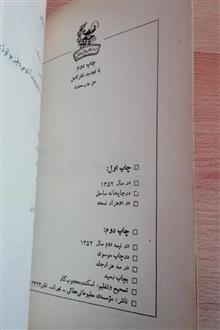 چاپ دوم
با تجدید نظر کامل
حق چاپ محفوظ
چاپ اول:
در سال ۱۳۵۲
در چاپخانه ساحل
در دوهزار نسخه
چاپ دوم:
در نیمه دوم سال ۱۳۵۲
در چاپ موسوی
در سه هزار جلد
بچاپ رسید
تصحیح و تنظیم: اسکندر محجوب کار
ناشر: مؤسسهٔ مطبوعاتی عطائی - تهران،